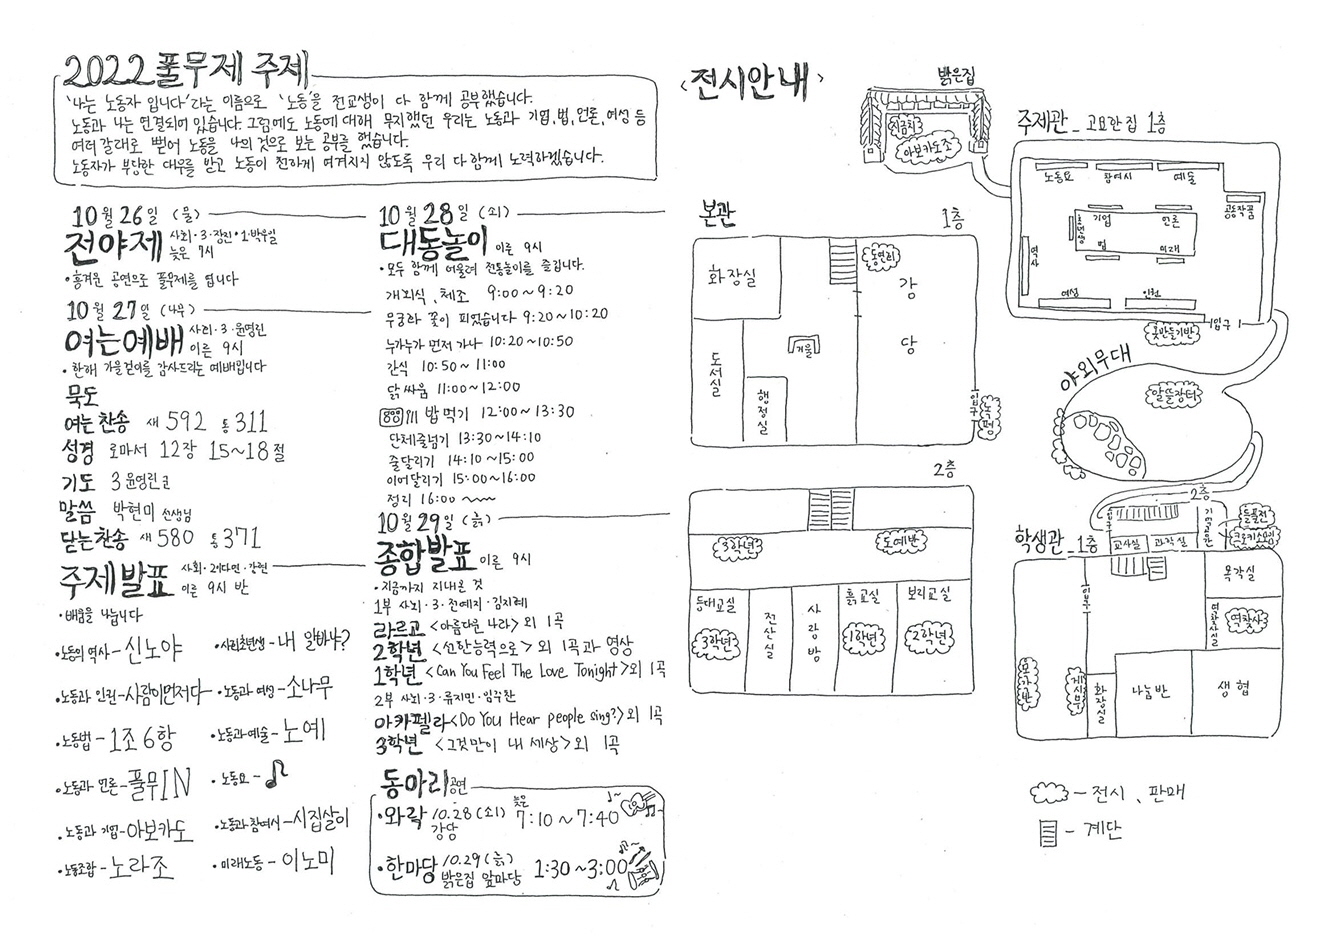 2022 풀무제 주제
'나는 노동자 입니다'라는 이름으로 '노동'을 전교생이 다 함께 공부했습니다.
노동과 나는 연결되어 있습니다. 그럼에도 노동에 대해 무지했던 우리는 노동과 기업, 법, 언론, 여성 등
여러 갈래로 뻗어 노동을 나의 것으로 보는 공부를 했습니다.
노동자가 부당한 대우를 받고 노동이 천하게 여겨지지 않도록 우리 다 함께 노력하겠습니다.
10월 26일 (물)
전야제 사회·3·장진·1·박우일
늦은 7시
·흥겨운 공연으로 풀무제를 엽니다
10월 27일 (나무)
여는예배 사회·3·윤영린
이른 9시
·한해 가을걷이를 감사드리는 예배입니다
묵도
여는 찬송 새 592 통 311
성경 로마서 12장 15~18절
기도 3 윤영린
말씀 박현미 선생님
닫는찬송 새 580 통 371
주제발표 사회·2
이른 9시 반
·배움을 나눕니다
·노동의 역사-신노야
·사회초년생-내 알바냐?
·노동과 인권-사람이먼저다
·노동과 여성-소나무
·노동법-1조 6항
·노동과 예술-노예
·노동과 언론-풀무IN
·노동요-
·노동과 기업-아보카도
·노동과 참여시-시집살이
·노동조합-노라조
·미래노동-이노미
10월 28일 (쇠)
대동놀이 이른 9시
·모두 함께 어울려 전통놀이를 즐깁니다.
개회식, 체조 9:00~9:20
무궁화 꽃이 피었습니다 9:20~10:20
누가누가 먼저 가나 10:20~10:50
간식 10:50~11:00
닭싸움 11:00~12:00
밥 먹기 12:00~13:30
단체줄넘기 13:30~14:10
줄달리기 14:10~15:00
이어달리기 15:00~16:00
정리 16:00 ~
10월 29일 (흙)
종합발표 이른 9시
·지금까지 지내온 것
1부 사회·3·전예지·김지혜
라르고 <아름다운 나라> 외 1곡
2학년 <선한능력으로> 외 1곡과 영상
1학년 <Can You Feel The Love Tonight> 외 1곡
2부 사회·3·류지민·임수찬
아카펠라 <Do You Hear people sing?> 외 1곡
3학년 <그것만이 내 세상> 외 1곡
동아리 공연
·와락 10.28(쇠) 늦은 7:10~7:40
강당
·한마당 10.29(흙) 1:30~3:00
밝은집 앞마당
<전시안내>
밝은집
아보카도조
주제관_고요한집 1층
노동요
참여시
예술
공동작품
기업
언론
법
미래
역사
여성
인권
입구
본관
1층
화장실
동연리
강당
도서실
거울
행정실
입구
녹평
야외무대
알뜰장터
2층
3학년
도예반
등대교실
3학년
전산실
사랑방
흙교실
1학년
보리교실
2학년
2층
학생관_1층
교사실
과학실
들풀전
목각실
역사실
역찾사
입구
화장실
나눔반
생협
-전시, 판매
-계단